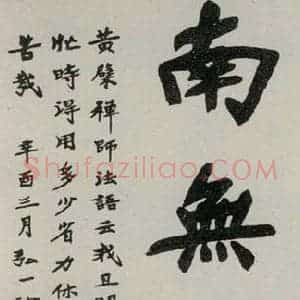 南無
黃檗禪師法語云我且
忙時得用多少省力休
苦哉 辛酉三月弘一
Shufaziliao.COM